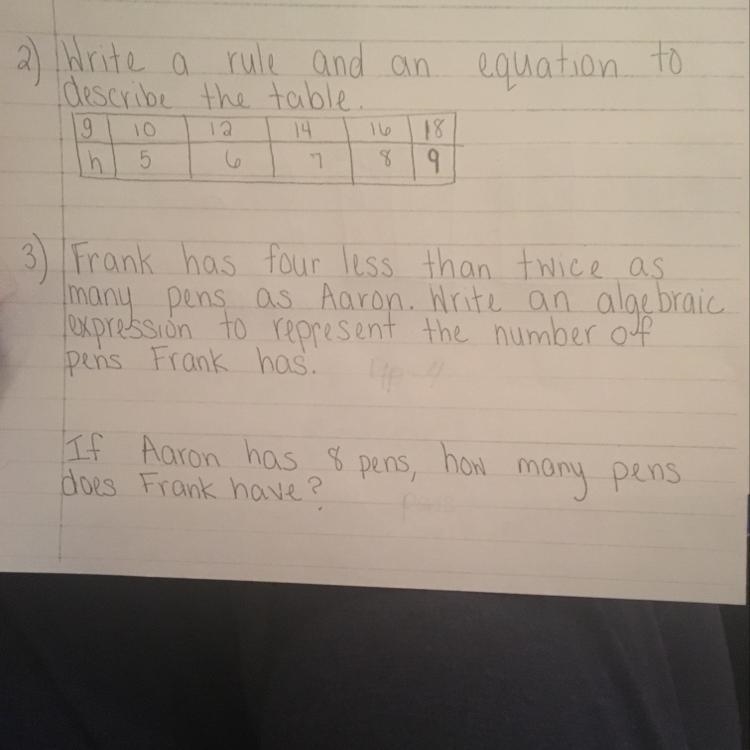 2) Write a rule and an equation to
describe the table.
g 10 12 14 16 18
h 5 6 7 8 9
3) Frank has four less than twice as
many pens as Aaron. Write an algebraic
expression to represent the number of
pens Frank has.
If Aaron has 8 pens, how many pens
does Frank have?